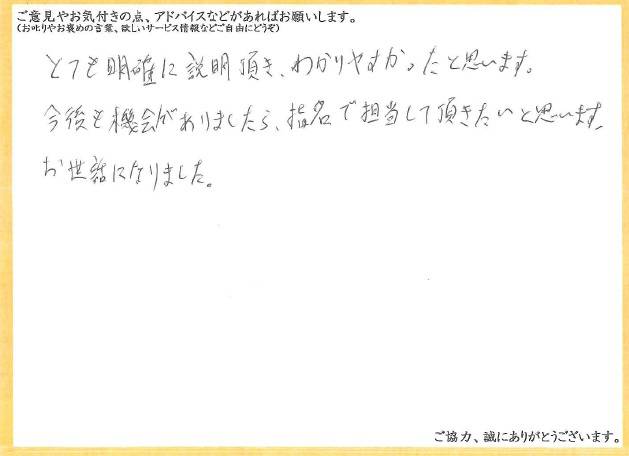 ご意見やお気付きの点、アドバイスなどがあればお願いします。
(お叱りやお褒めの言葉、欲しいサービス情報などご自由にどうぞ)
とても明確に説明頂き、わかりやすかったと思います。
今後も機会がありましたら、指名で担当して頂きたいと思います。
お世話になりました。
ご協力、誠にありがとうございます。